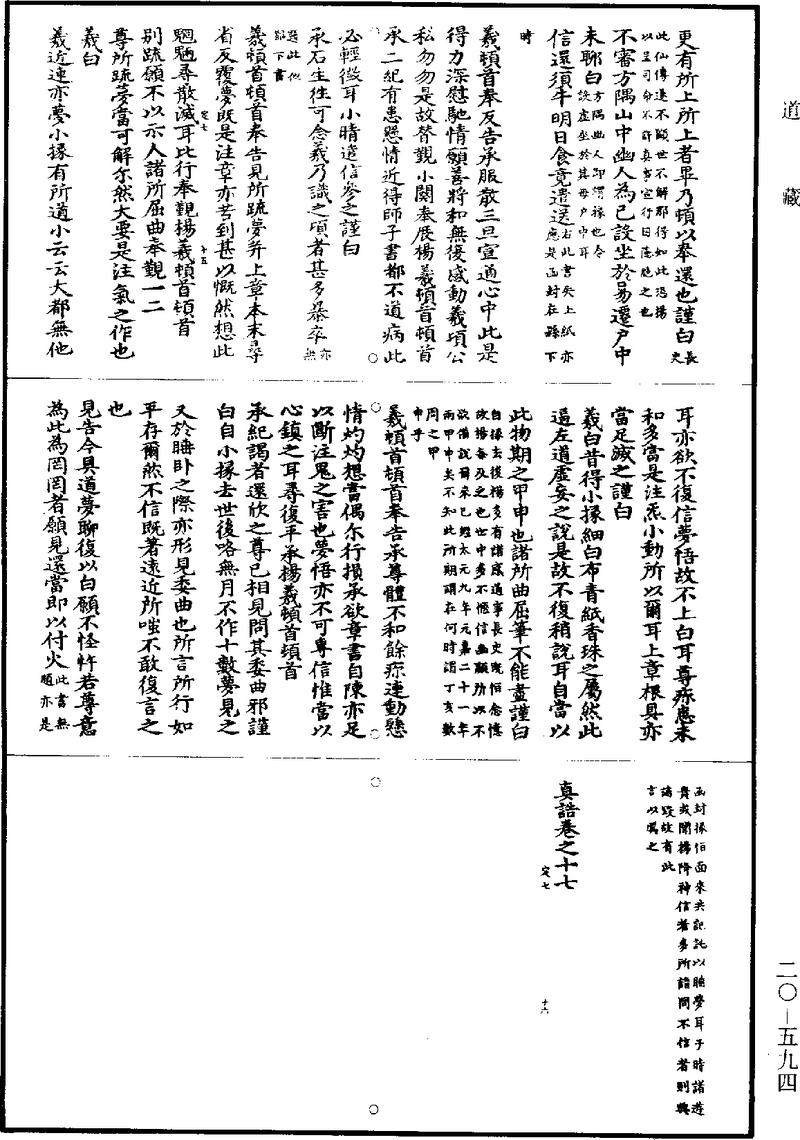 道藏
更有所上所上者畢乃頓以奉還也謹白長史
此仙傳遂不顯世不解那得如此恐揚
以呈司命不許真事宣行日隱起之也
不審方隅山中幽人為已設坐於易遷戶中
未聊白方隅幽人即謂掾也令
設虛坐於其母戶中耳
信還須牛明日食竟遣送右此書失上紙亦
應是函封在縣下
時
羲頓首奉反告承服散三旦宣通心中此是
得力深慰馳情願善將和無復感動羲頃公
私勿勿是故替覲小闋奉展楊羲頓首頓首
承二紀有患懸情近得師子書都不道病此
必輕微耳小晴遣信參之謹白
承石生往可念羲乃識之頃者甚多暴卒亦
無
羲頓首頓首奉告見所疏夢并上章本末尋
省反覆夢既是注章亦苦到甚以慨然想此
魍魎尋散滅耳比行奉覲楊羲頓首頓首
定七
十五
別疏願不以示人諸所屈曲奉覲一二
尊所疏夢當可解尔然大要是注氣之作也
羲白
羲近連亦夢小掾有所道小云云大都無他
耳亦欲不復信夢悟故不上白耳尊疹應未
和多當是注炁小動所以爾耳上章根具亦
當足滅之謹白
羲白昔得小掾細白布青紙香珠之屬然此
逼左道虛妄之說是故不復稍說耳自當以
此物期之甲申也諸所曲屈筆不能盡謹白
自掾去後楊多有諸感通事長史既恒念憶
故揚每及之也世中多不愜信幽顯所以不
欲備說爾來已經太元九年元嘉二十一年
兩甲申矣不知此所期謂在何時謂丁亥數
周之甲
申乎
羲頓首頓首奉告承尊體不和餘疹連動懸
情灼灼想當偶尔行損承欲章書自陳亦足
以斷注鬼之害也夢悟亦不可專信惟當以
心鎮之耳尋復平承楊羲頓首頓首
承紀謁者還欣之尊已相見問其委曲邪謹
白自小掾去世後略無月不作十數夢見之
又於睡卧之際亦形見委曲也所言所行如
平存爾然不信既著遠近所嗤不敢復言之
也
見告今具道夢聊復以白願不怪忤若尊意
為此為罔罔者願見還當即以付火此書無
題亦是
函封掾恒面來去記託以睡夢耳于時諸遊
貴或聞楊降神信者多所諮問不信者則興
譏毀故有此
言以厲之
真誥卷之十七
定七
十六
二〇—五九四